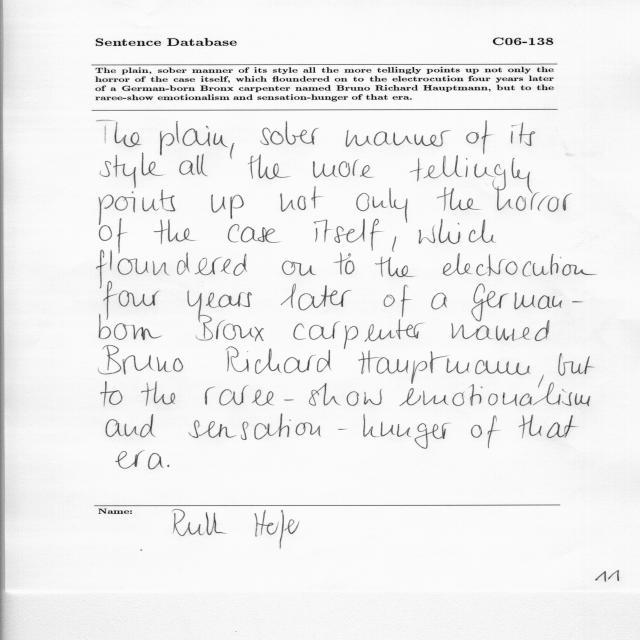 Sentence Database C06-138
The plain, sober manner of its style all the more tellingly points up not only the
horror of the case itself, which floundered on to the electrocution four years later
of a German-born Bronx carpenter named Bruno Richard Hauptmann, but to the
raree-show emotionalism and sensation-hunger of that era.
The plain, sober manner of its
style all the more tellingly
points up not only the horror
of the case itself, which
floundered on to the electrocution
four years later of a German-
born Bronx carpenter named
Bruno Richard Hauptmann, but
to the raree-show emotionalism
and sensation-hunger of that
era.
Name:
11